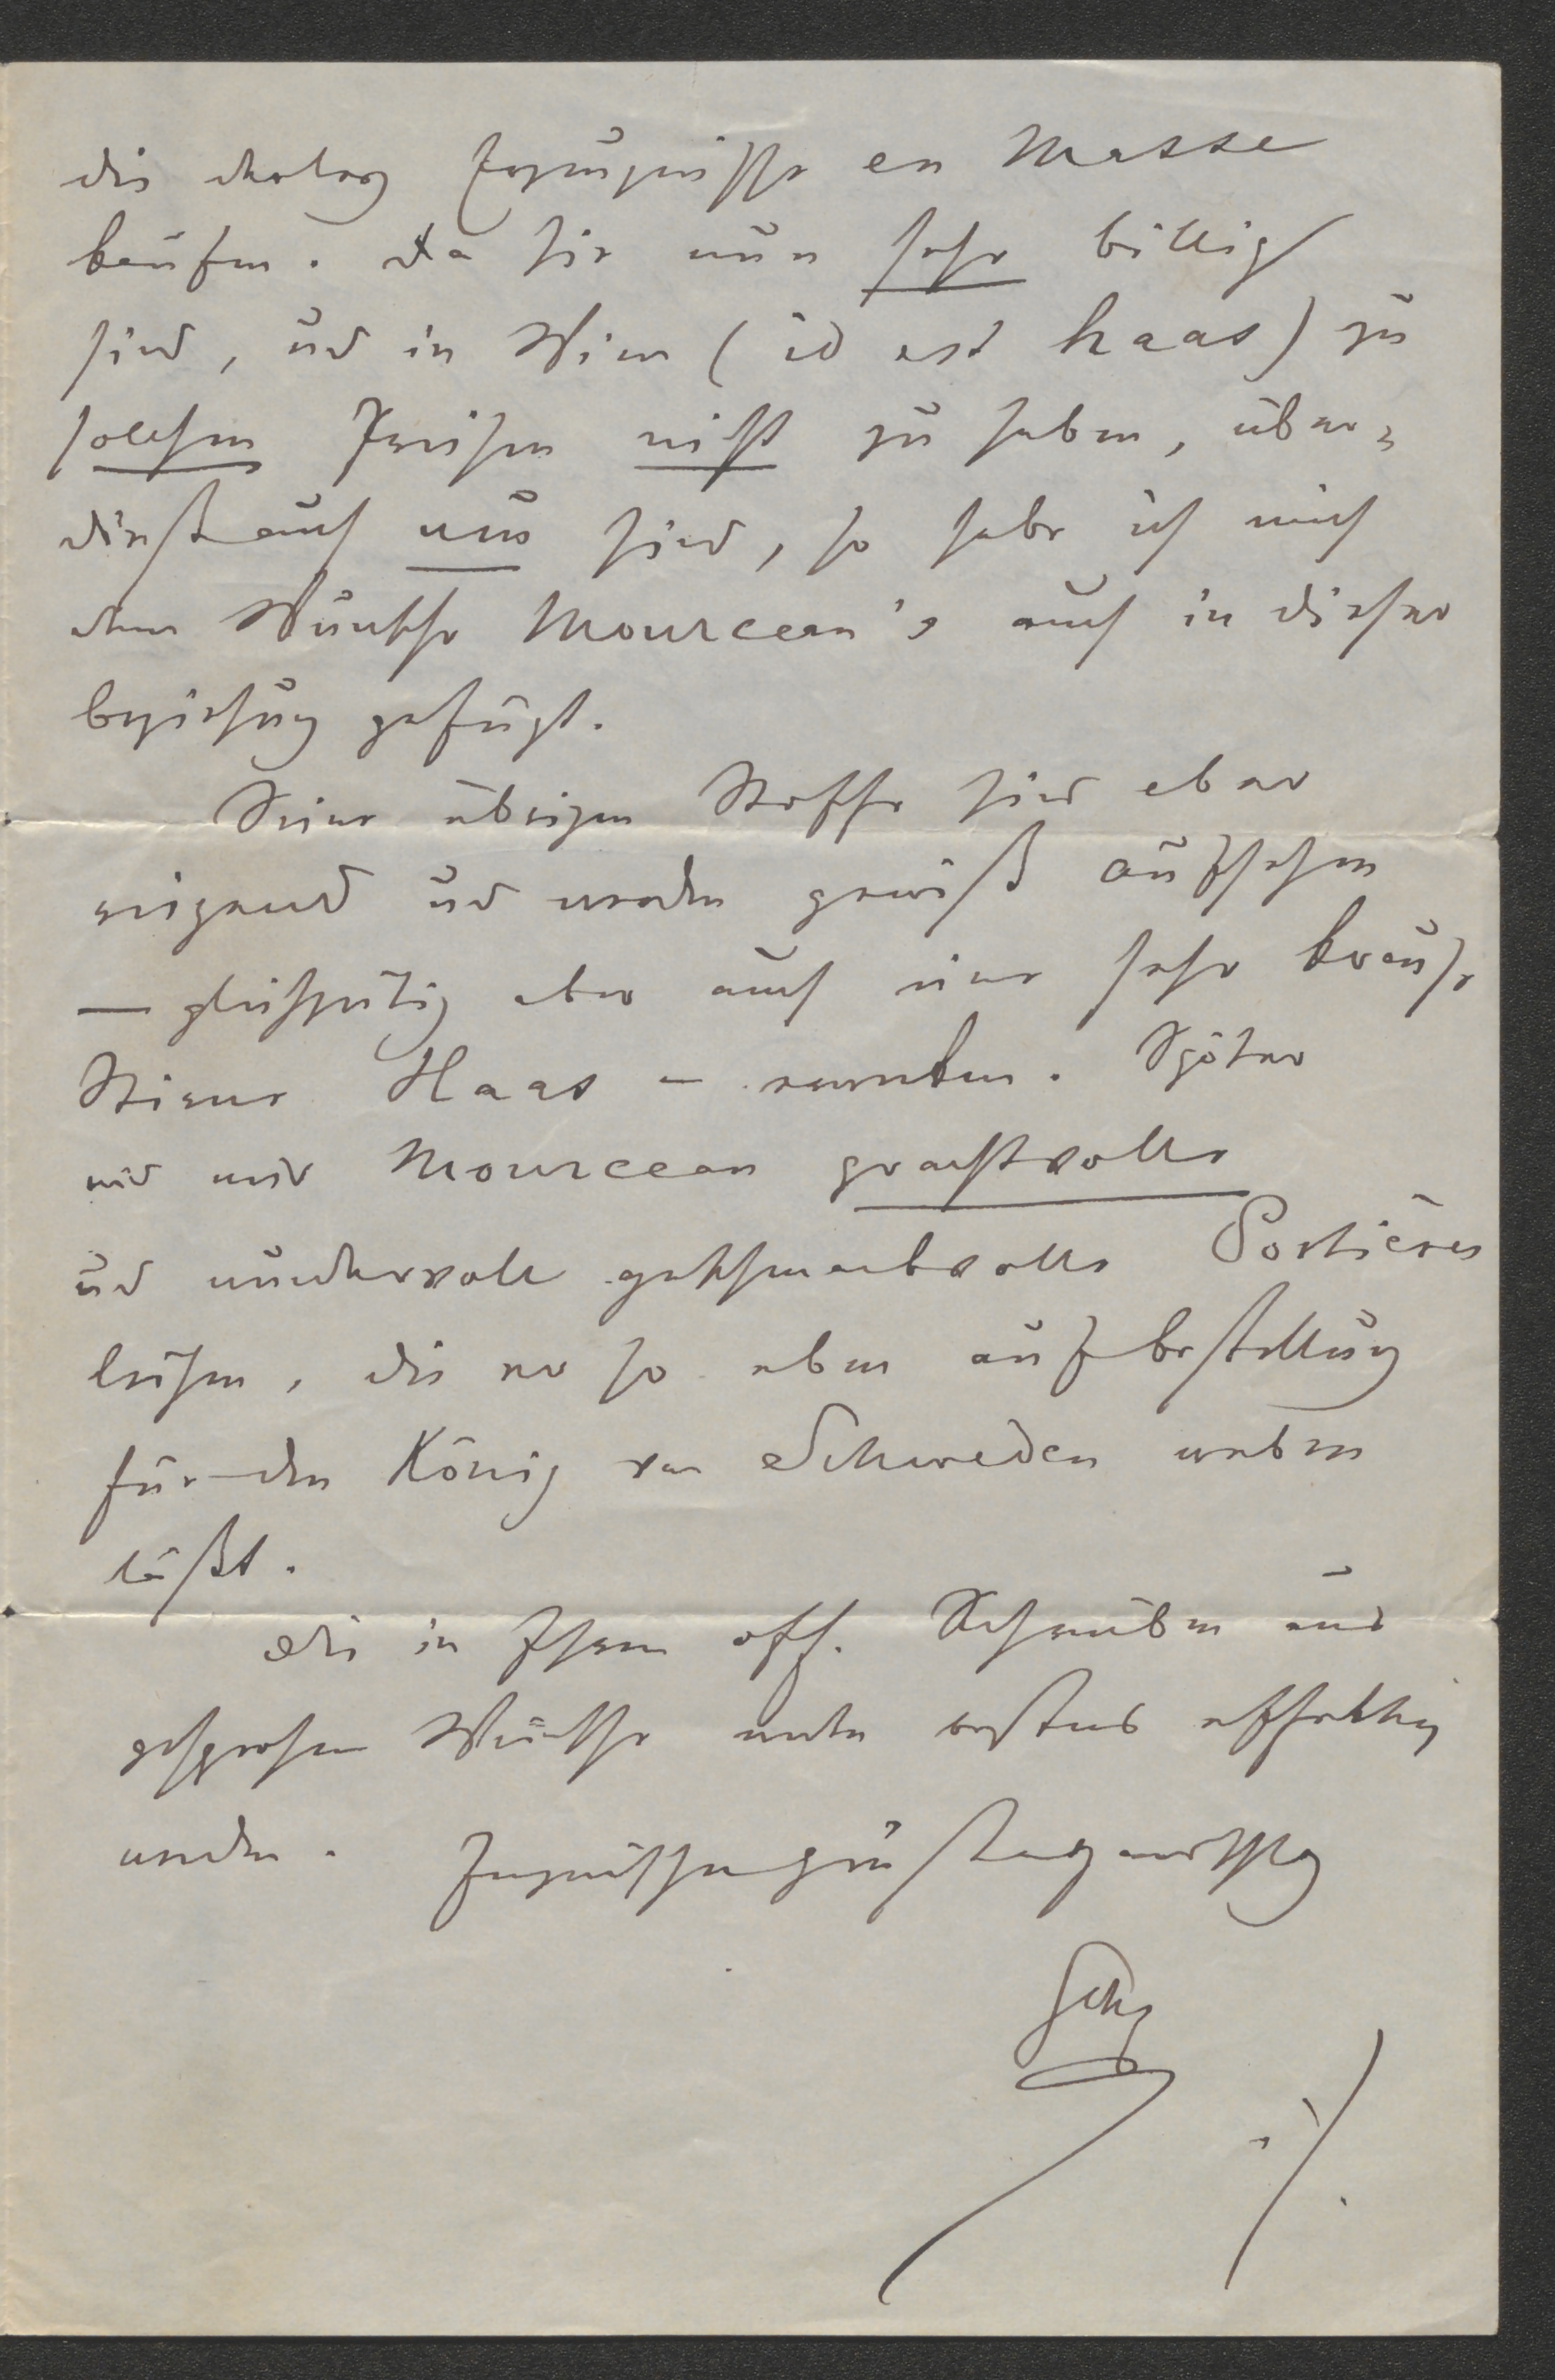 die derley Erzeugnisse en Masse
kaufen. Da sie nun sehr billig
sind, und in Wien (id est Haas) zu
solchen Preisen nicht zu haben, über-
dieß auch neu sind, so habe ich mich
dem Wunsche Mourceau's auch in dieser
Beziehung gefügt.
Seine übrigen Stoffe sind eber
reizend und werden gewiß Aufsehen
— gleichzeitig aber auch eine sehr krause
Stirne Haas – erwecken. Später
wird mir Mourceau prachtvolle
und wundervoll geschmackvolle Portièren
leihen, die er so eben auf Bestellung
für den König von Schweden weben
läßt.
Die in Ihrem off. Schreiben aus
gesprochenen Wünsche werden bestens effektuirt
werden.